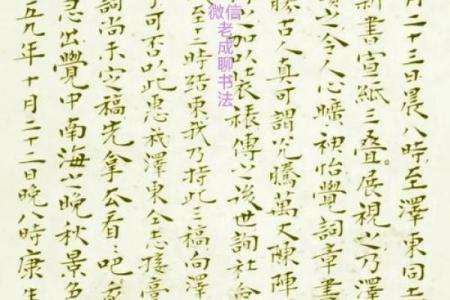 月二十三日晨八時至澤東同
新書宣紙三叠展視之乃澤
之令人心曠初怡覺詞章書
勝古人真可謂光騰萬丈陳陣
加以装裱傳之後世詞社會
至三時結束我乃持此三稿向澤
可否以此惠我澤東仝志接
詞尚未定稿先拿去看看吧
急出覺中南海之晚秋景色
五九年十月二十二日晚八時康生
微信
老成聊书法